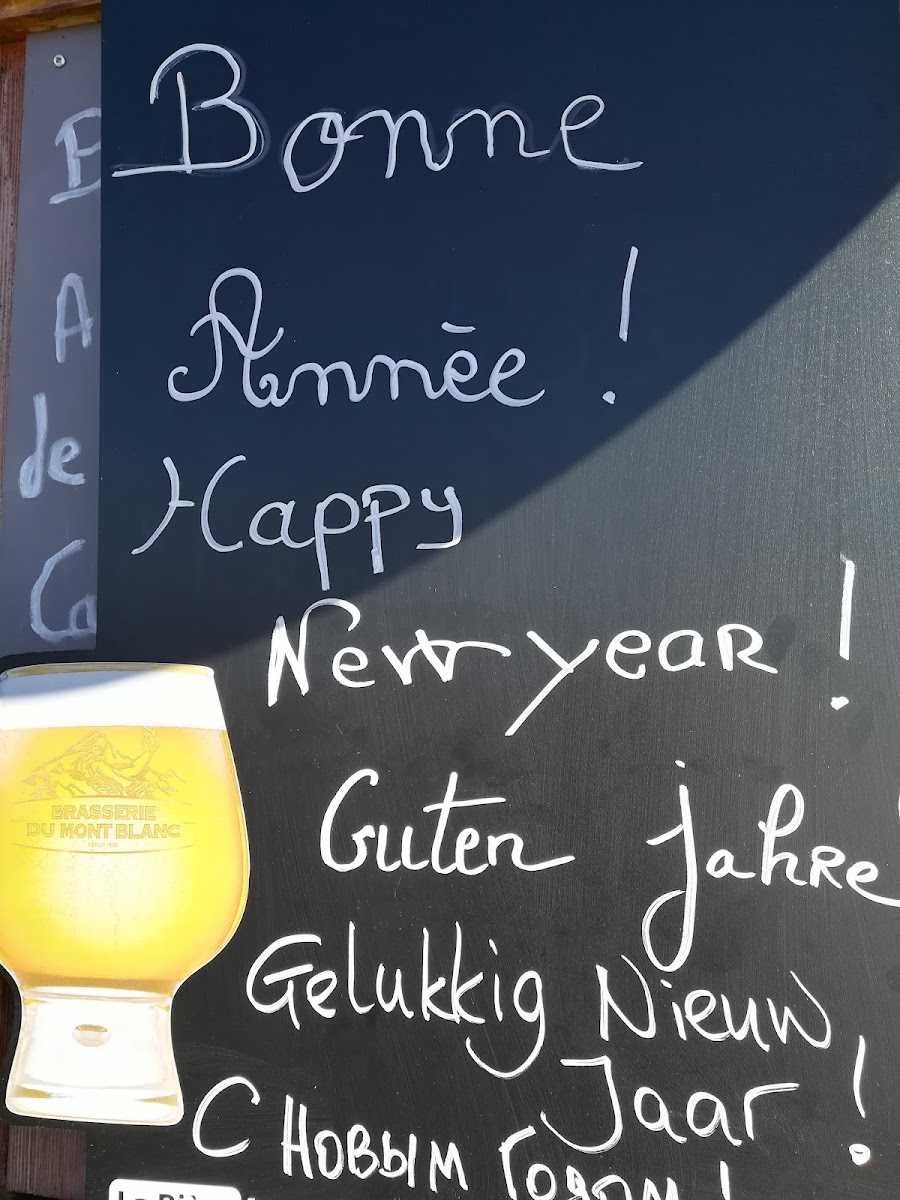 Bonne
Année !
Happy
New year !
Guten Jahre
Gelukkig Nieuw
Jaar !
С Новым Годом !
B
A
de
Ca
BRASSERIE
DU MONT BLANC